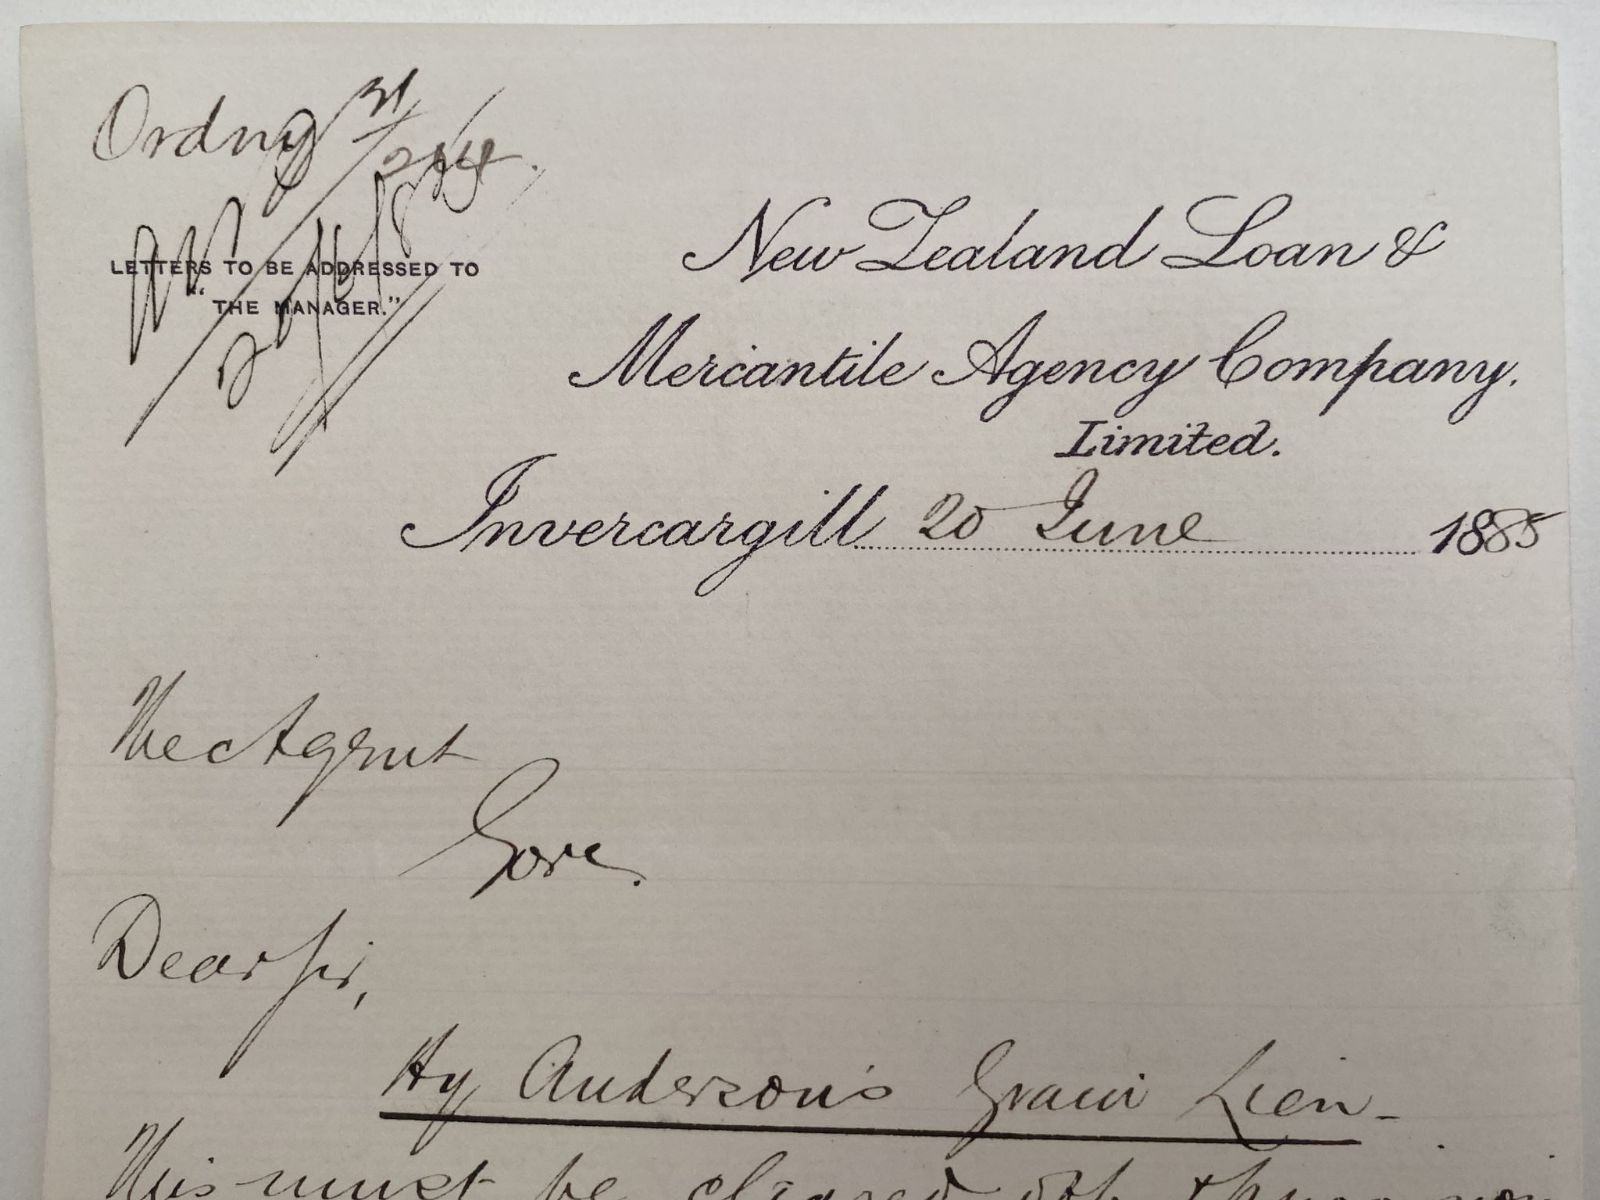 Ordny 31/284.
LETTERS TO BE ADDRESSED TO
"THE MANAGER."
New Zealand Loan &
Mercantile Agency Company.
Limited.
Invercargill 20 June 1885
The Agent
Gore.
Dear Sir,
Hy Anderson's Grain Lien -
This must be cleared off